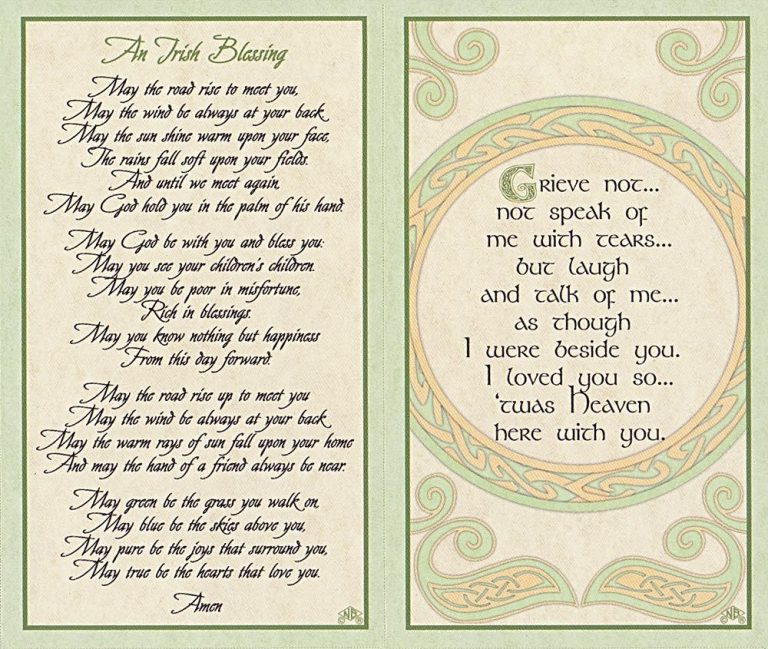 An Irish Blessing
May the road rise to meet you,
May the wind be always at your back
May the sun shine warm upon your face,
The rains fall soft upon your fields.
And until we meet again,
May God hold you in the palm of his hand.
May God be with you and bless you:
May you see your children's children.
May you be poor in misfortune,
Rich in blessings.
May you know nothing but happiness
From this day forward.
May the road rise up to meet you
May the wind be always at your back
May the warm rays of sun fall upon your home
And may the hand of a friend always be near.
May green be the grass you walk on,
May blue be the skies above you,
May pure be the joys that surround you,
May true be the hearts that love you.
Amen
NB
Grieve not...
not speak of
me with tears...
but laugh
and talk of me...
as though
I were beside you.
I loved you so...
'twas Heaven
here with you.
NB